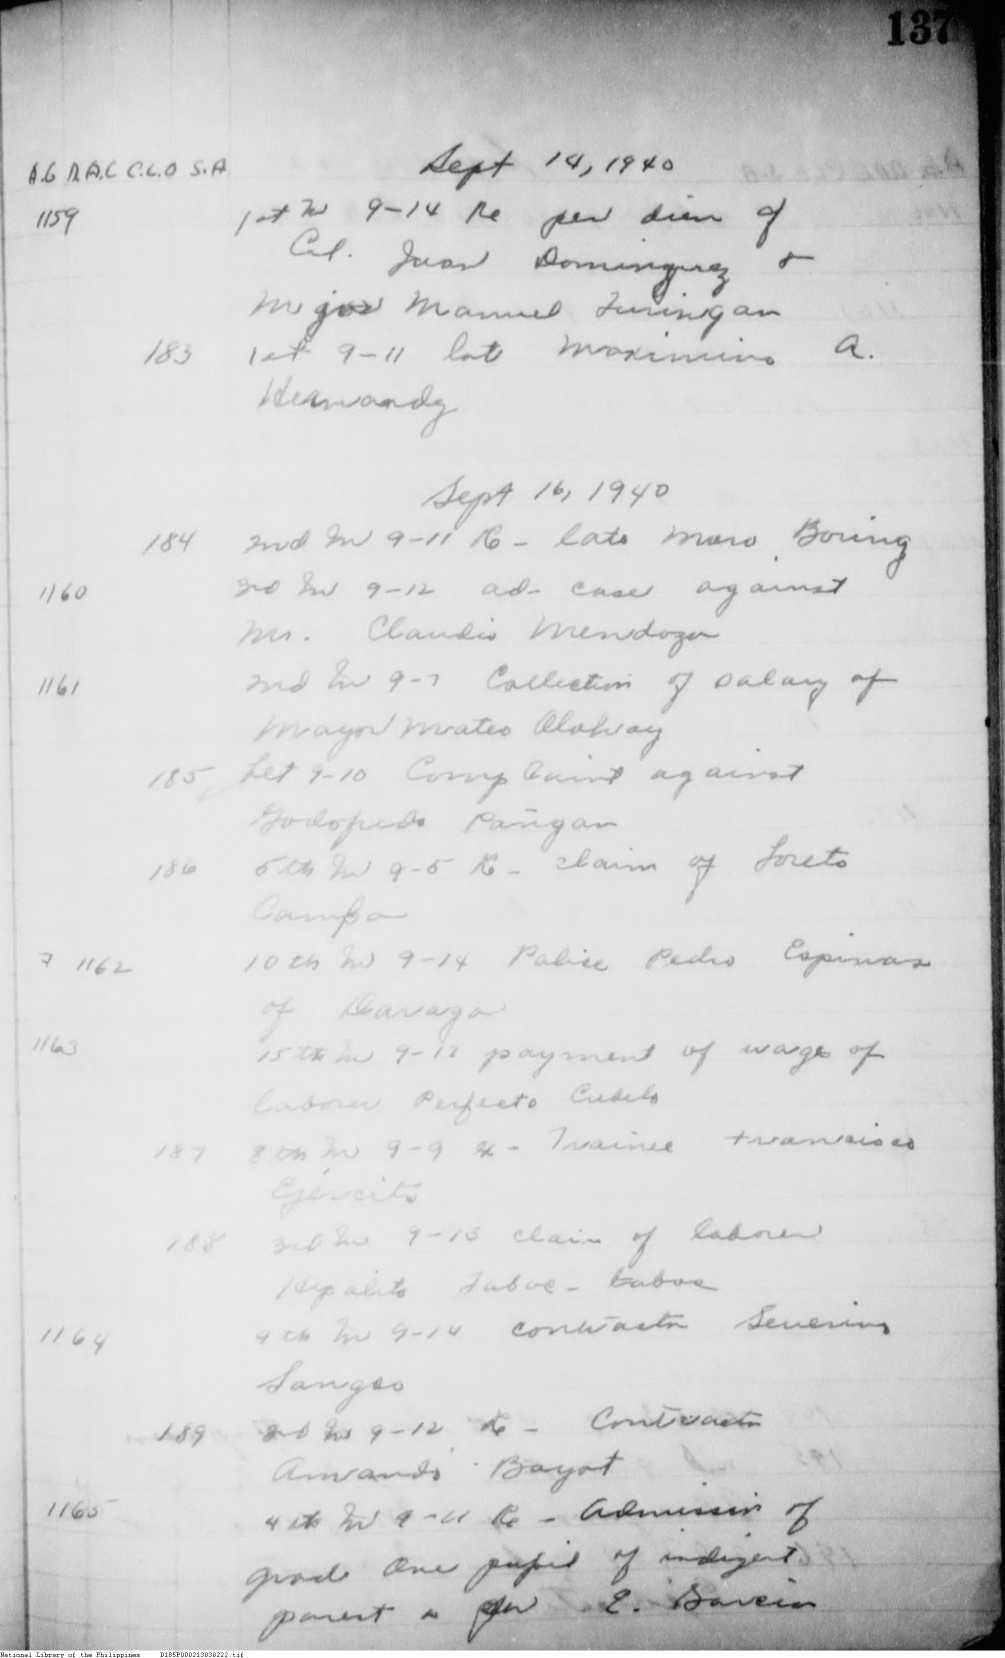 137
A.G D.A.C C.L.O S.A
Sept 14, 1940
1159 1st In 9-14 Re per diem of
Col. Juan Dominguez &
Major Manuel Turingan
183 1st 9-11 late Maximino A.
Hernandz
Sept 16, 1940
184 2nd In 9-11 Re - late Moro Boring
1160 3rd In 9-12 ad- case against
Mr. Claudio Mendoza
1161 2nd In 9-7 Collection of salary of
Mayor Mateo
185 Let 9-10 Complaint against
Godofredo Pañgan
186 5th In 9-5 Re - claim of Loreto
Campo
7 1162 10th In 9-14 Police Pedro Espinas
of Daraga
1163 15th In 9-12 payment of wages of
laborer Perfecto
187 8th In 9-9 Re - Trainee Francisco
Ejercito
188 3rd In 9-13 claim of laborer
Hipolito Taboc-taboc
1164 9th In 9-14 contractor Severino
Sangco
189 3rd In 9-12 Re - Contractor
Amando Bayot
1165 4th In 9-11 Re - Admission of
grade One pupil of indigent
parent is for E. Garcia
National Library of the Philippines D185P000213830222.tif